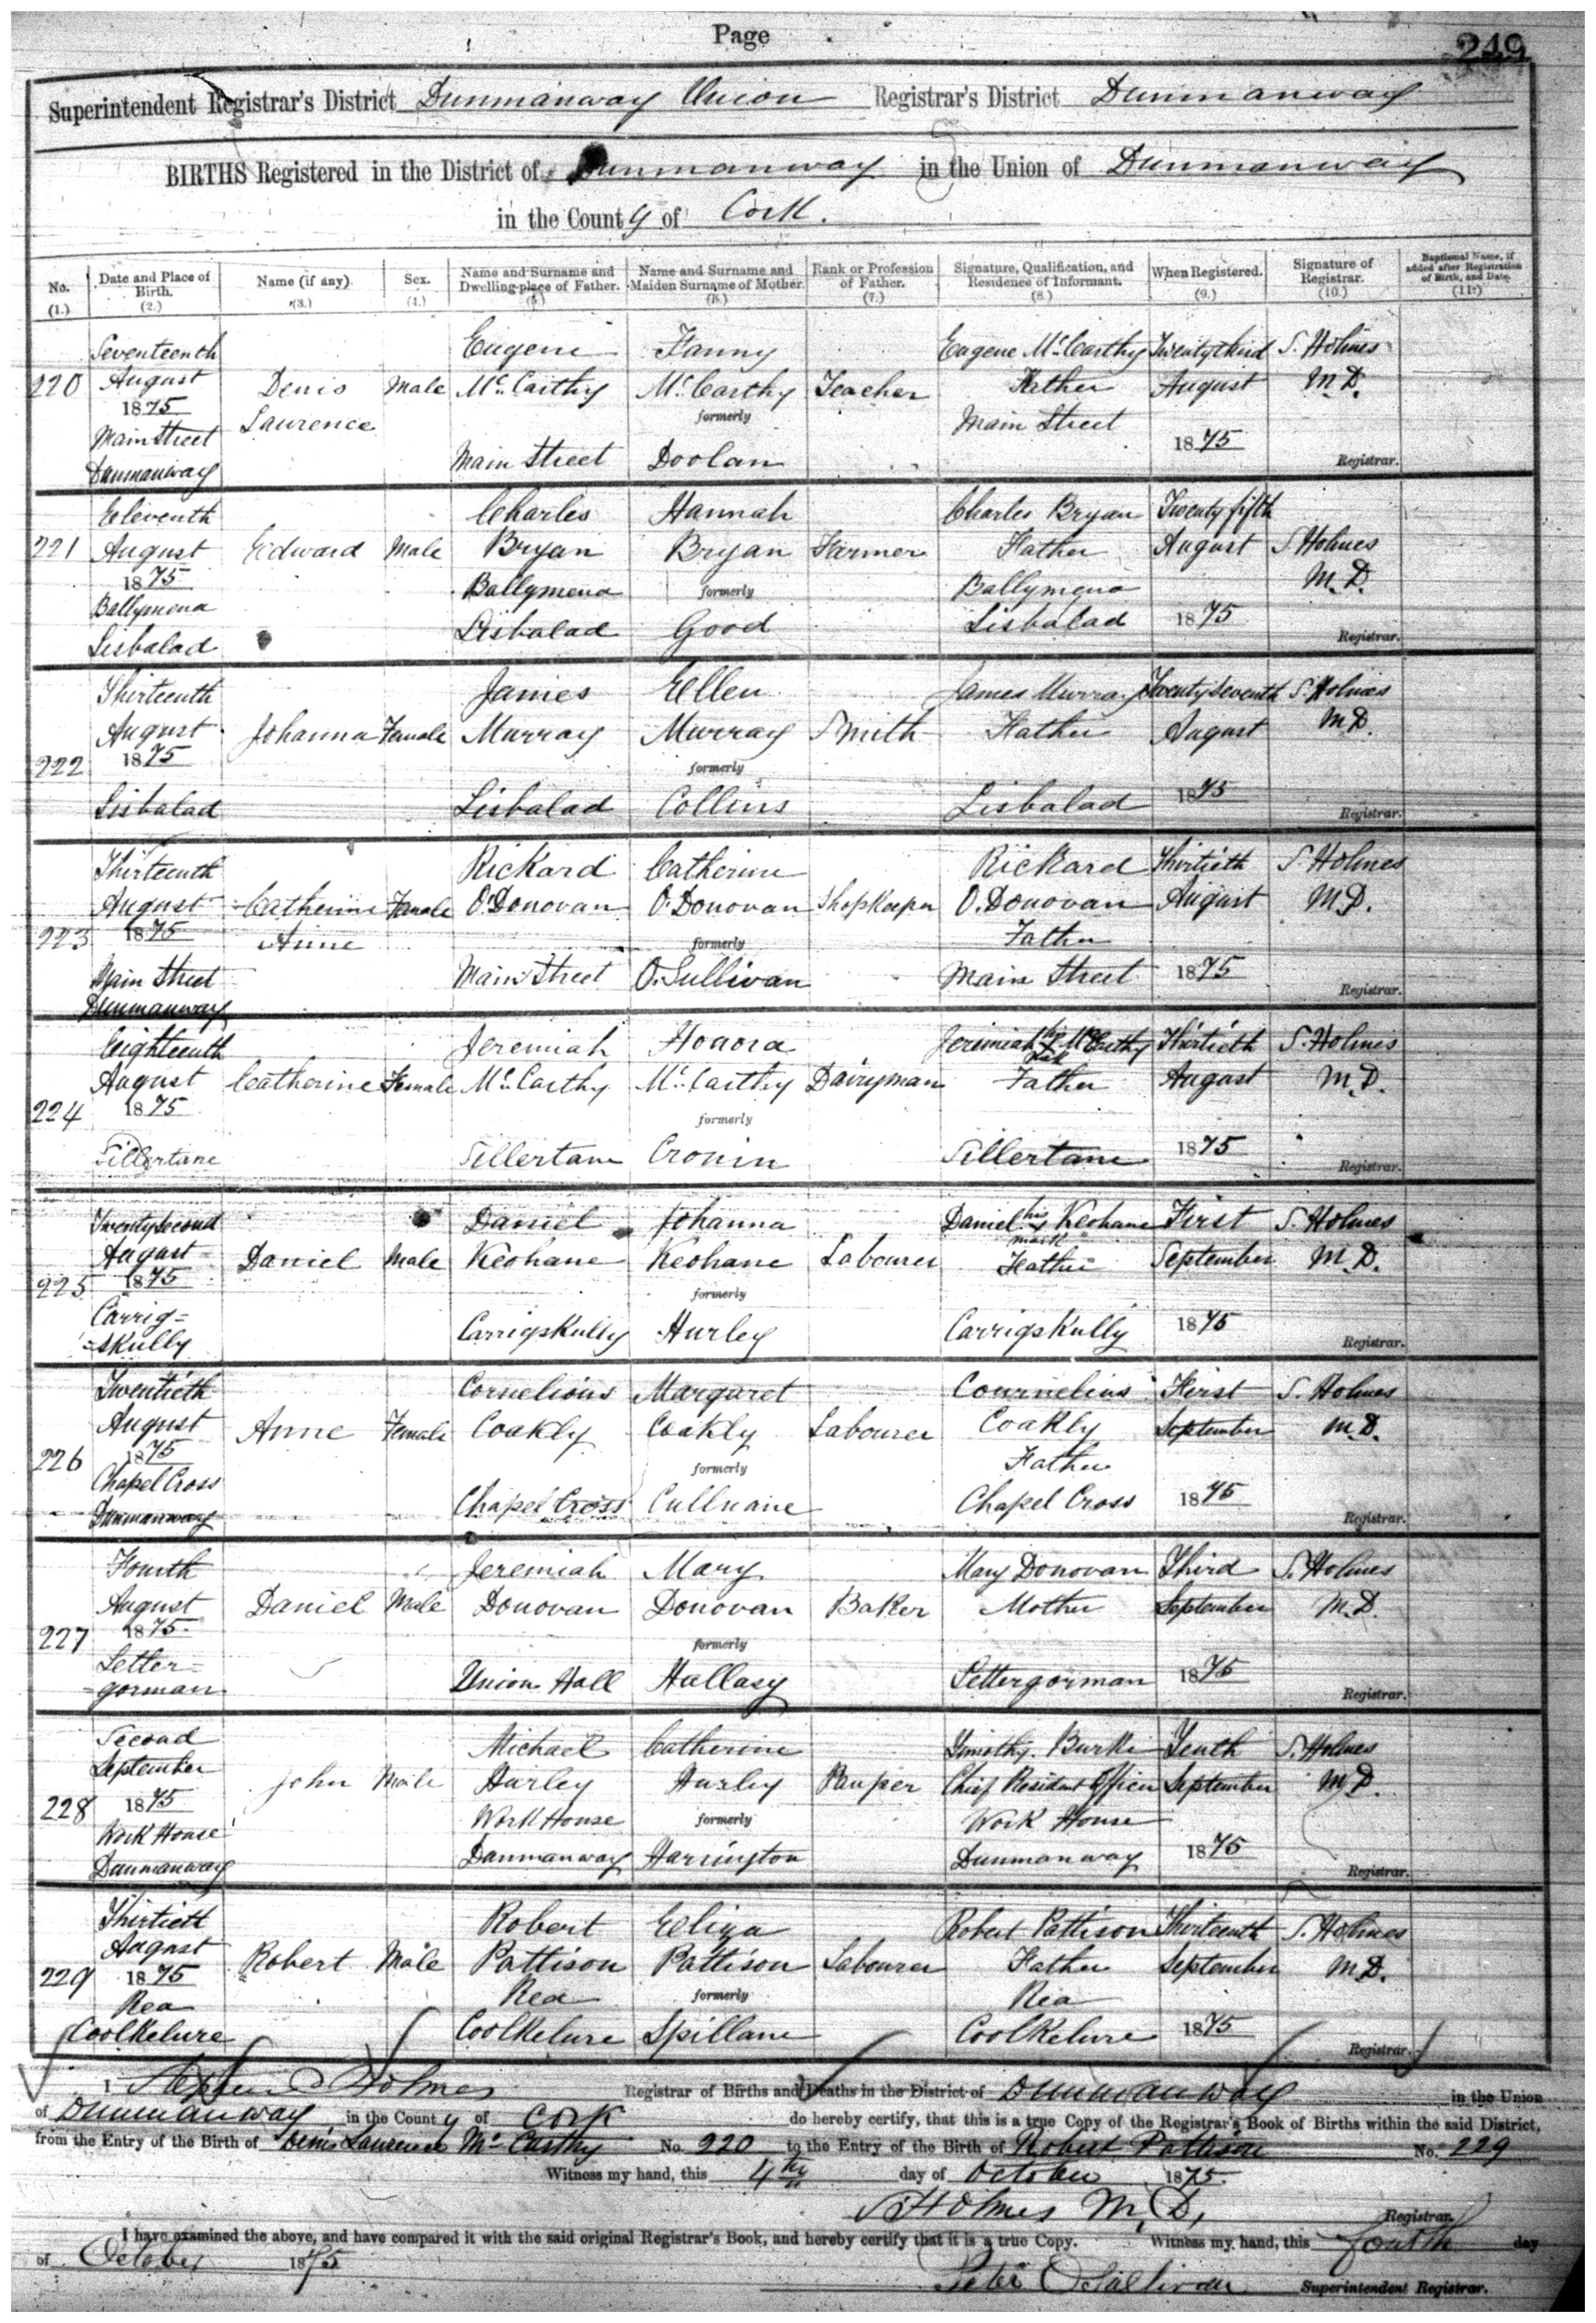 Page
249
Superintendent Registrar's District Dunmanway Union Registrar's District Dunmanway
BIRTHS Registered in the District of Dunmanway in the Union of Dunmanway
in the County of Cork.
No. (1.)
Date and Place of Birth. (2.)
Name (if any). (3.)
Sex. (4.)
Name and Surname and Dwelling-place of Father. (5.)
Name and Surname and Maiden Surname of Mother. (6.)
Rank or Profession of Father. (7.)
Signature, Qualification, and Residence of Informant. (8.)
When Registered. (9.)
Signature of Registrar. (10.)
Baptismal Name, if added after Registration of Birth, and Date. (11.)
Seventeenth Eugene Fanny Eugene McCarthy Twenty third S. Holmes
220 August Denis Male McCarthy McCarthy Teacher Father August M.D.
1875 Laurence formerly Main Street
Main Street 1875
Dunmanway Main Street Doolan Registrar.
Eleventh Charles Hannah Charles Bryan Twenty fifth
221 August Edward Male Bryan Bryan Farmer Father August S Holmes
1875 Ballymena formerly Ballymena M.D.
Ballymena
Lisbalad Lisbalad Good Lisbalad 1875 Registrar.
Thirteenth James Ellen James Murray Twenty seventh S. Holmes
August Johanna Female Murray Murray Smith Father August M.D.
222 1875 formerly
Lisbalad Lisbalad Collins Lisbalad 1875 Registrar.
Thirteenth Rickard Catherine Rickard Thirtieth S. Holmes
August Catherine Female O'Donovan O.Donovan Shopkeeper O.Donovan August M.D.
223 1875 Anne formerly Father
Main Street Main Street O.Sullivan Main Street 1875 Registrar.
Dunmanway
Eighteenth Jeremiah Honora Jeremiah his x mark McCarthy Thirtieth S. Holmes
August Catherine Female McCarthy McCarthy Dairyman Father August M.D.
224 1875 formerly
Tillertane Tillertane Cronin Tillertane 1875 Registrar.
Twenty second Daniel Johanna Daniel his x mark Keohane First S. Holmes
August Daniel Male Keohane Keohane Labourer Father September M.D.
225 1875 formerly
Carrig=
=skully Carrigskully Hurley Carrigskully 1875 Registrar.
Twentieth Cornelious Margaret Cournelius First S. Holmes
August Anne Female Coakly Coakly Labourer Coakly September M.D.
226 1875 formerly Father
Chapel Cross
Dunmanway Chapel Cross Cullnane Chapel Cross 1875 Registrar.
Fourth Jeremiah Mary Mary Donovan Third S. Holmes
August Daniel Male Donovan Donovan Baker Mother September M.D.
227 1875 formerly
Letter=
=gorman Union Hall Hallasy Lettergorman 1875 Registrar.
Second Michael Catherine Timothy Burke Tenth S. Holmes
September John Male Hurley Hurley Pauper Chief Resident Officer September M.D.
228 1875 Work House formerly Work House
Work House
Dunmanway Dunmanway Harrington Dunmanway 1875 Registrar.
Thirtieth Robert Eliza Robert Pattison Thirteenth S. Holmes
August Robert Male Pattison Pattison Labourer Father September M.D.
229 1875 Rea formerly Rea
Rea
Coolkelure Coolkelure Spillane Coolkelure 1875 Registrar.
I Holmes Registrar of Births and Deaths in the District of Dunmanway in the Union
of Dunmanway in the County of Cork do hereby certify, that this is a true Copy of the Registrar's Book of Births within the said District,
from the Entry of the Birth of Denis Laurence McCarthy No. 220 to the Entry of the Birth of Robert Pattison No. 229
Witness my hand, this 4th day of October 1875.
S Holmes M.D. Registrar.
I have examined the above, and have compared it with the said original Registrar's Book, and hereby certify that it is a true Copy. Witness my hand, this fourth day
of October 1875
Peter O'Sullivan Superintendent Registrar.